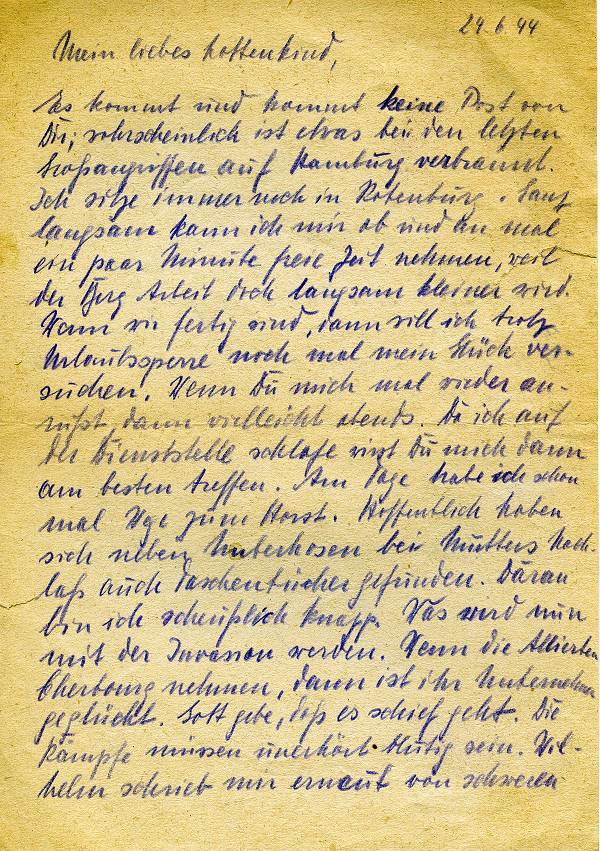 24.6.44
Mein liebes Lottenkind,
Es kommt und kommt keine Post von
Dir; wahrscheinlich ist etwas bei den letzten
Großangriffen auf Hamburg verbrannt.
Ich sitze immer noch in Rotenburg. Ganz
langsam kann ich mir ab und an mal
ein paar Minute freie Zeit nehmen, weil
der Berg Arbeit doch langsam kleiner wird.
Wenn wir fertig sind, dann will ich trotz
Urlaubssperre noch mal mein Glück ver-
suchen. Wenn Du mich mal wieder an-
rufst, dann vielleicht abends. Da ich auf
der Dienststelle schlafe wirst Du mich dann
am besten treffen. Am Tage habe ich schon
mal Wege zum Horst. Hoffentlich haben
sich neben Unterhosen bei Mutters Nach-
laß auch Taschentücher gefunden. Daran
bin ich scheußlich knapp. Was wird nun
mit der Invasion werden. Wenn die Alliierten
Cherbourg nehmen, dann ist ihr Unternehmen
geglückt. Gott gebe, daß es schief geht. Die
Kämpfe müssen unerhört blutig sein. Wil-
helm schrieb mir erneut von schweren